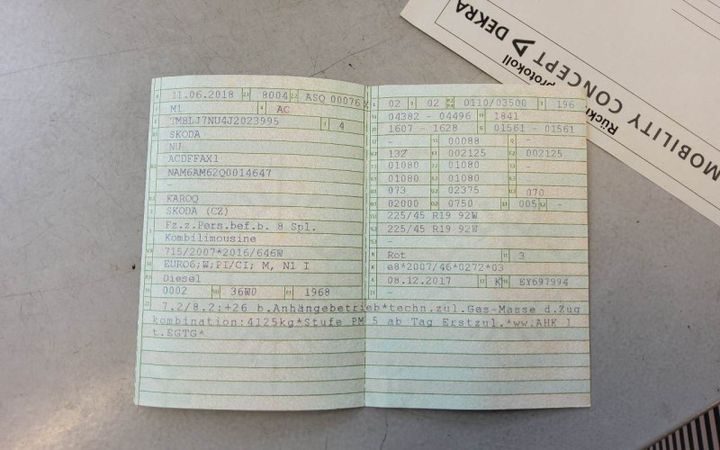 DEKRA
MOBILITY CONCEPT
protokoll
11.06.2018 8004 ASQ 00076
M1 AC
TMBLJ7NU4J2023995 4
SKODA
NU
ACDFFAX1
NAM6AM62Q0014647
-
KAROQ
SKODA (CZ)
Fz.z.Pers.bef.b. 8 Spl.
Kombilimousine
715/2007*2016/646W
EURO6;W;PI/CI; M, N1 I
Diesel
0002 36W0 1968
02 02 0110/03500 196
04382 - 04496 1841
1607 - 1628 01561 - 01561
- 00088 -
13Z 002125 002125
01080 01080 -
01080 01080 -
073 02375 070
02000 0750 005 -
225/45 R19 92W
225/45 R19 92W
-
Rot 3
e8*2007/46*0272*03
08.12.2017 K EY697994
-
7.2/8.2:+26 b.Anhängebetrieb*techn.zul.Ges-Masse d.Zug
kombination:4125kg*Stufe PM 5 ab Tag Erstzul.*ww.AHK l
t.EGTG*